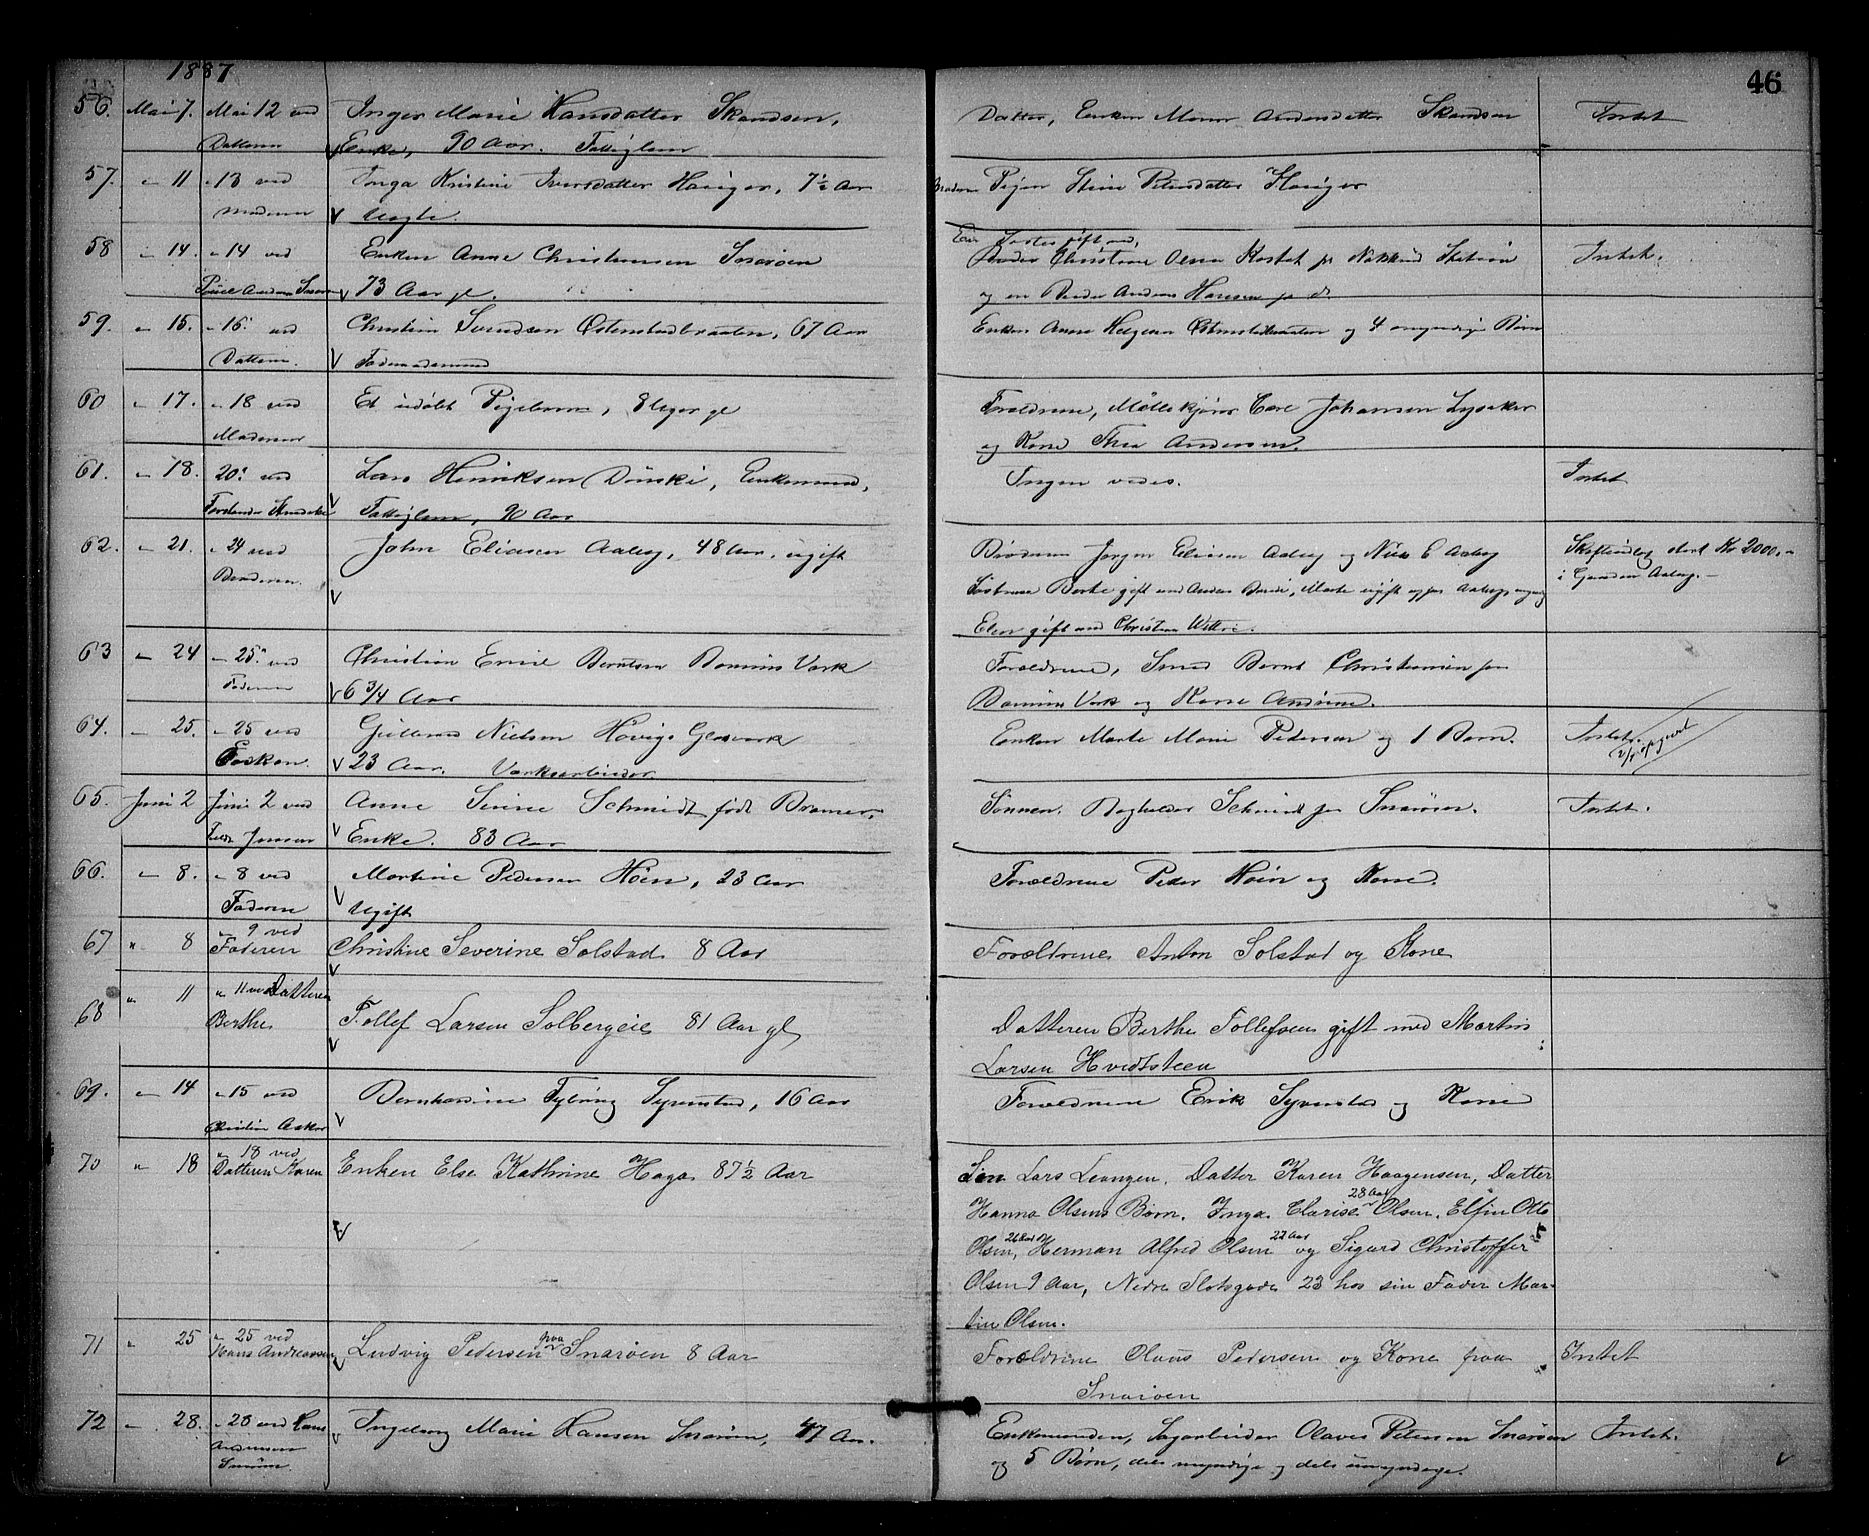 1887
46
56. Mai 7. Mai 12 ved Inger Marie Hansdatter Skandsen, Datter, Enken Maren Andersdatter Skandsen Intet
Datteren Enke, 90 Aar. Fattiglem
57. " 11 " 13 ved Inga Kristine Iversdatter 7½ Aar Pigen Stine Petersdatter
Moderen
58 " 14. " 14 ved Enken Anne Christensen Snarøen gift med Christine Olsen Station Intet.
73 Aar gl. og en Anders Hansen
59. " 15. " 16. ved Christian Svendsen Østenstadbraaten, 67 Aar Enken Anne Helgesen og 4 umyndige Børn
Datteren. Fodermadsmand
60 " 17. " 18 ved Et udøbt Pigebarn, 8 Uger gl Forældrene, Møllekjører Carl Johansen Lysaker
Moderen og Kone Thea Andersen.
61. " 18. 20. ved Lars Henriksen Dønski, Enkemand, Ingen vides. Intet
Fattiglem, 90 Aar
62. " 21. " 24 ved John Eliasen Aaberg, 48 Aar, ugift Brødrene Jørgen Eliasen Aaberg og Nils E Aaberg Kr 2000.-
Broderen. Søstrene Berthe gift med Anders Marte ugift i Gaarden Aaberg.-
Elen gift med Christian
63 " 24 " 25. ved Christian Emil Berntsen Bærums Værk Forældrene, Smed Bernt Christiansen paa
Faderen 6 3/4 Aar Bærums Værk og Kone Andrine.
64. " 25. " 25 ved Nielsen Høvigs Glasværk Enken Marte Marie Pedersen og 1 Barn. Intet.
Enken. 23 Aar. Værksarbeider
65. Juni 2 Juni 2 ved Anne Schmidt født Bramer, Sønnen. Bogholder Schmidt paa Snarøen. Intet.
Jensen Enke. 83 Aar
66. " 8. " 8 ved Martine Pedersen Høen, 23 Aar Forældrene Peder Høen og Kone.
Faderen Ugift
67 " 8 " 9 ved
Faderen Christine Severine Solstad 8 Aar Forældrene Anton Solstad og Kone
68 " 11 " 11 ved Datteren
Berthe Tollef Larsen Solbergeie 81 Aar gl Datteren Berthe Tollefsen gift med Martin
Larsen Hvidtsteen
69. " 14 " 15 ved Bernhardine 16 Aar Forældrene Erik og Kone
Christian Asker
70 " 18 " 18 ved
Datteren Karen Enken Else Kathrine Haga 87½ Aar Søn Lars Leangen. Datter Karen Haagensen, Datter
28 Aar
Hanna Olsens Børn. Inga Clarise Olsen. Otto
26 Aar 22 Aar
Olsen, Herman Alfred Olsen og Sigurd Christoffer
Olsen 9 Aar, Nedre Slotsgade 23 hos sin Fader Mar-
tin Olsen.
71 " 25 " 25 ved
Hans Andreassen Ludvig Pedersen paa Snarøen 8 Aar Forældrene Olaus Pedersen og Kone paa Intet
Snarøen
72 " 28. " 28 ved Hans Ingeborg Marie Hansen Snarøen, 47 Aar. Enkemanden, Sagarbeider Olaves Petersen Snarøen Intet.
Andersen
Snarøen. og 5 Børn, dels myndige og dels umyndige.